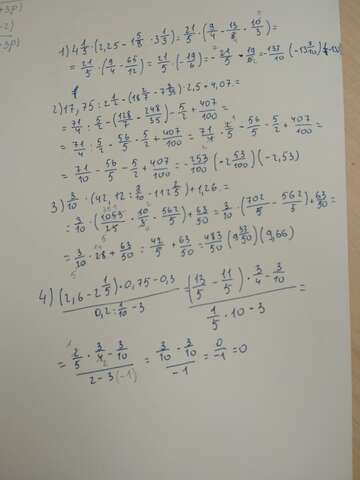 1) 4 1/5 · (2,25 - 1 5/8 · 3 1/3) = 21/5 · (9/4 - 13/8 · 10/3) =
= 21/5 · (9/4 - 65/12) = 21/5 · (-19/6) = - 21/5 · 19/6 = -133/10 (-13 3/10)
2) 17,75 : 2 1/2 - (18 2/7 - 7 3/35) · 2,5 + 4,07 =
= 71/4 : 5/2 - (128/7 - 248/35) · 5/2 + 407/100 =
= 71/4 : 5/2 - 56/5 · 5/2 + 407/100 = 71/4 · 2/5 - 56/5 · 5/2 + 407/100 =
= 71/10 - 56/5 · 5/2 + 407/100 = - 253/100 (-2 53/100) (-2,53)
3) 3/10 · (42,12 : 3/10 - 112 2/5) + 1,26 =
= 3/10 · (1053/25 · 10/3 - 562/5) + 63/50 = 3/10 · (702/5 - 562/5) + 63/50 =
= 3/10 · 28 + 63/50 = 42/5 + 63/50 = 483/50 (9 33/50) (9,66)
4) (2,6 - 2 1/5) · 0,75 - 0,3 / 0,2 : 1/10 - 3 = (13/5 - 11/5) · 3/4 - 3/10 / 1/5 · 10 - 3 =
= 2/5 · 3/4 - 3/10 / 2 - 3 (-1) = 3/10 · 3/10 / -1 = 0/-1 = 0